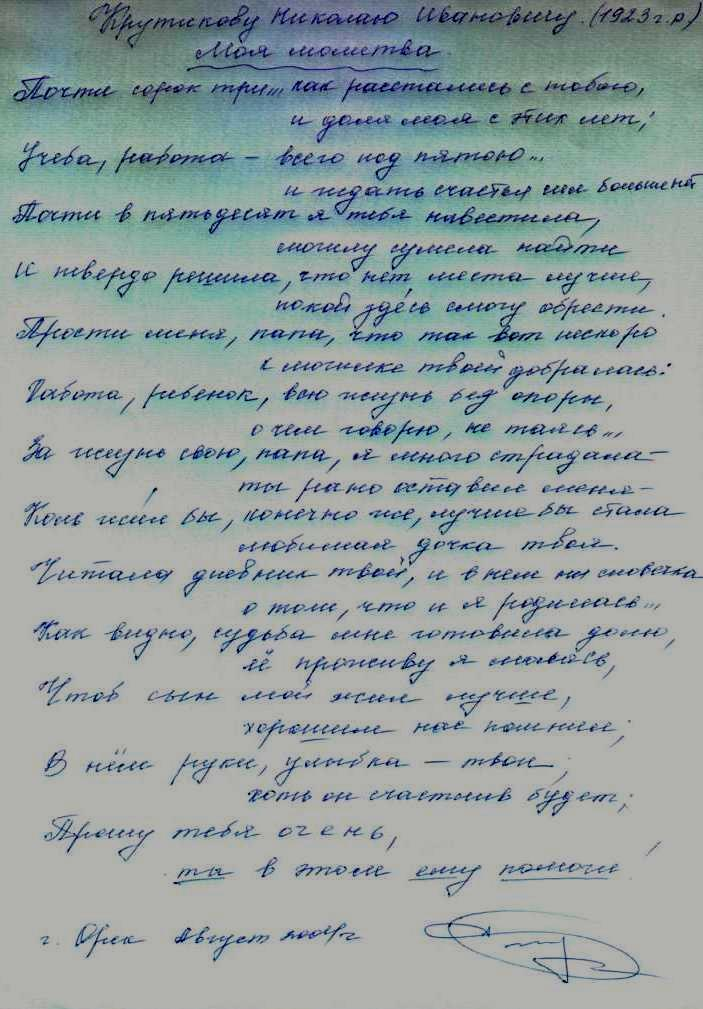 Крутикову Николаю Ивановичу. (1923 г.р)
Моя молитва.
Почти сорок три... как расстались с тобою,
и доля моя с этих лет;
Учеба, работа – всего под пятою...
и ждать счастья сил больше нет
Почти в пятьдесят я тебя навестила,
могилу сумела найти
И твердо решила, что нет места лучше,
покой здесь смогу обрести.
Прости меня, папа, что так вот нескоро
к могилке твоей добралась:
Работа, ребенок, всю жизнь без опоры,
о чем говорю, не таясь...
За жизнь свою, папа, я много страдала –
ты рано оставил меня –
Коль жил бы, конечно же, лучше бы стала
любимая дочка твоя.
Читала дневник твой, и в нем ни словечка
о том, что и я родилась...
Как видно, судьба мне готовила долю,
её проживу я молясь,
Чтоб сын мой жил лучше,
хорошим нас помнил;
В нём руки, улыбка – твои;
хоть он счастлив будет;
Прошу тебя очень,
ты в этом ему помоги!
г. Орск Август 2004г